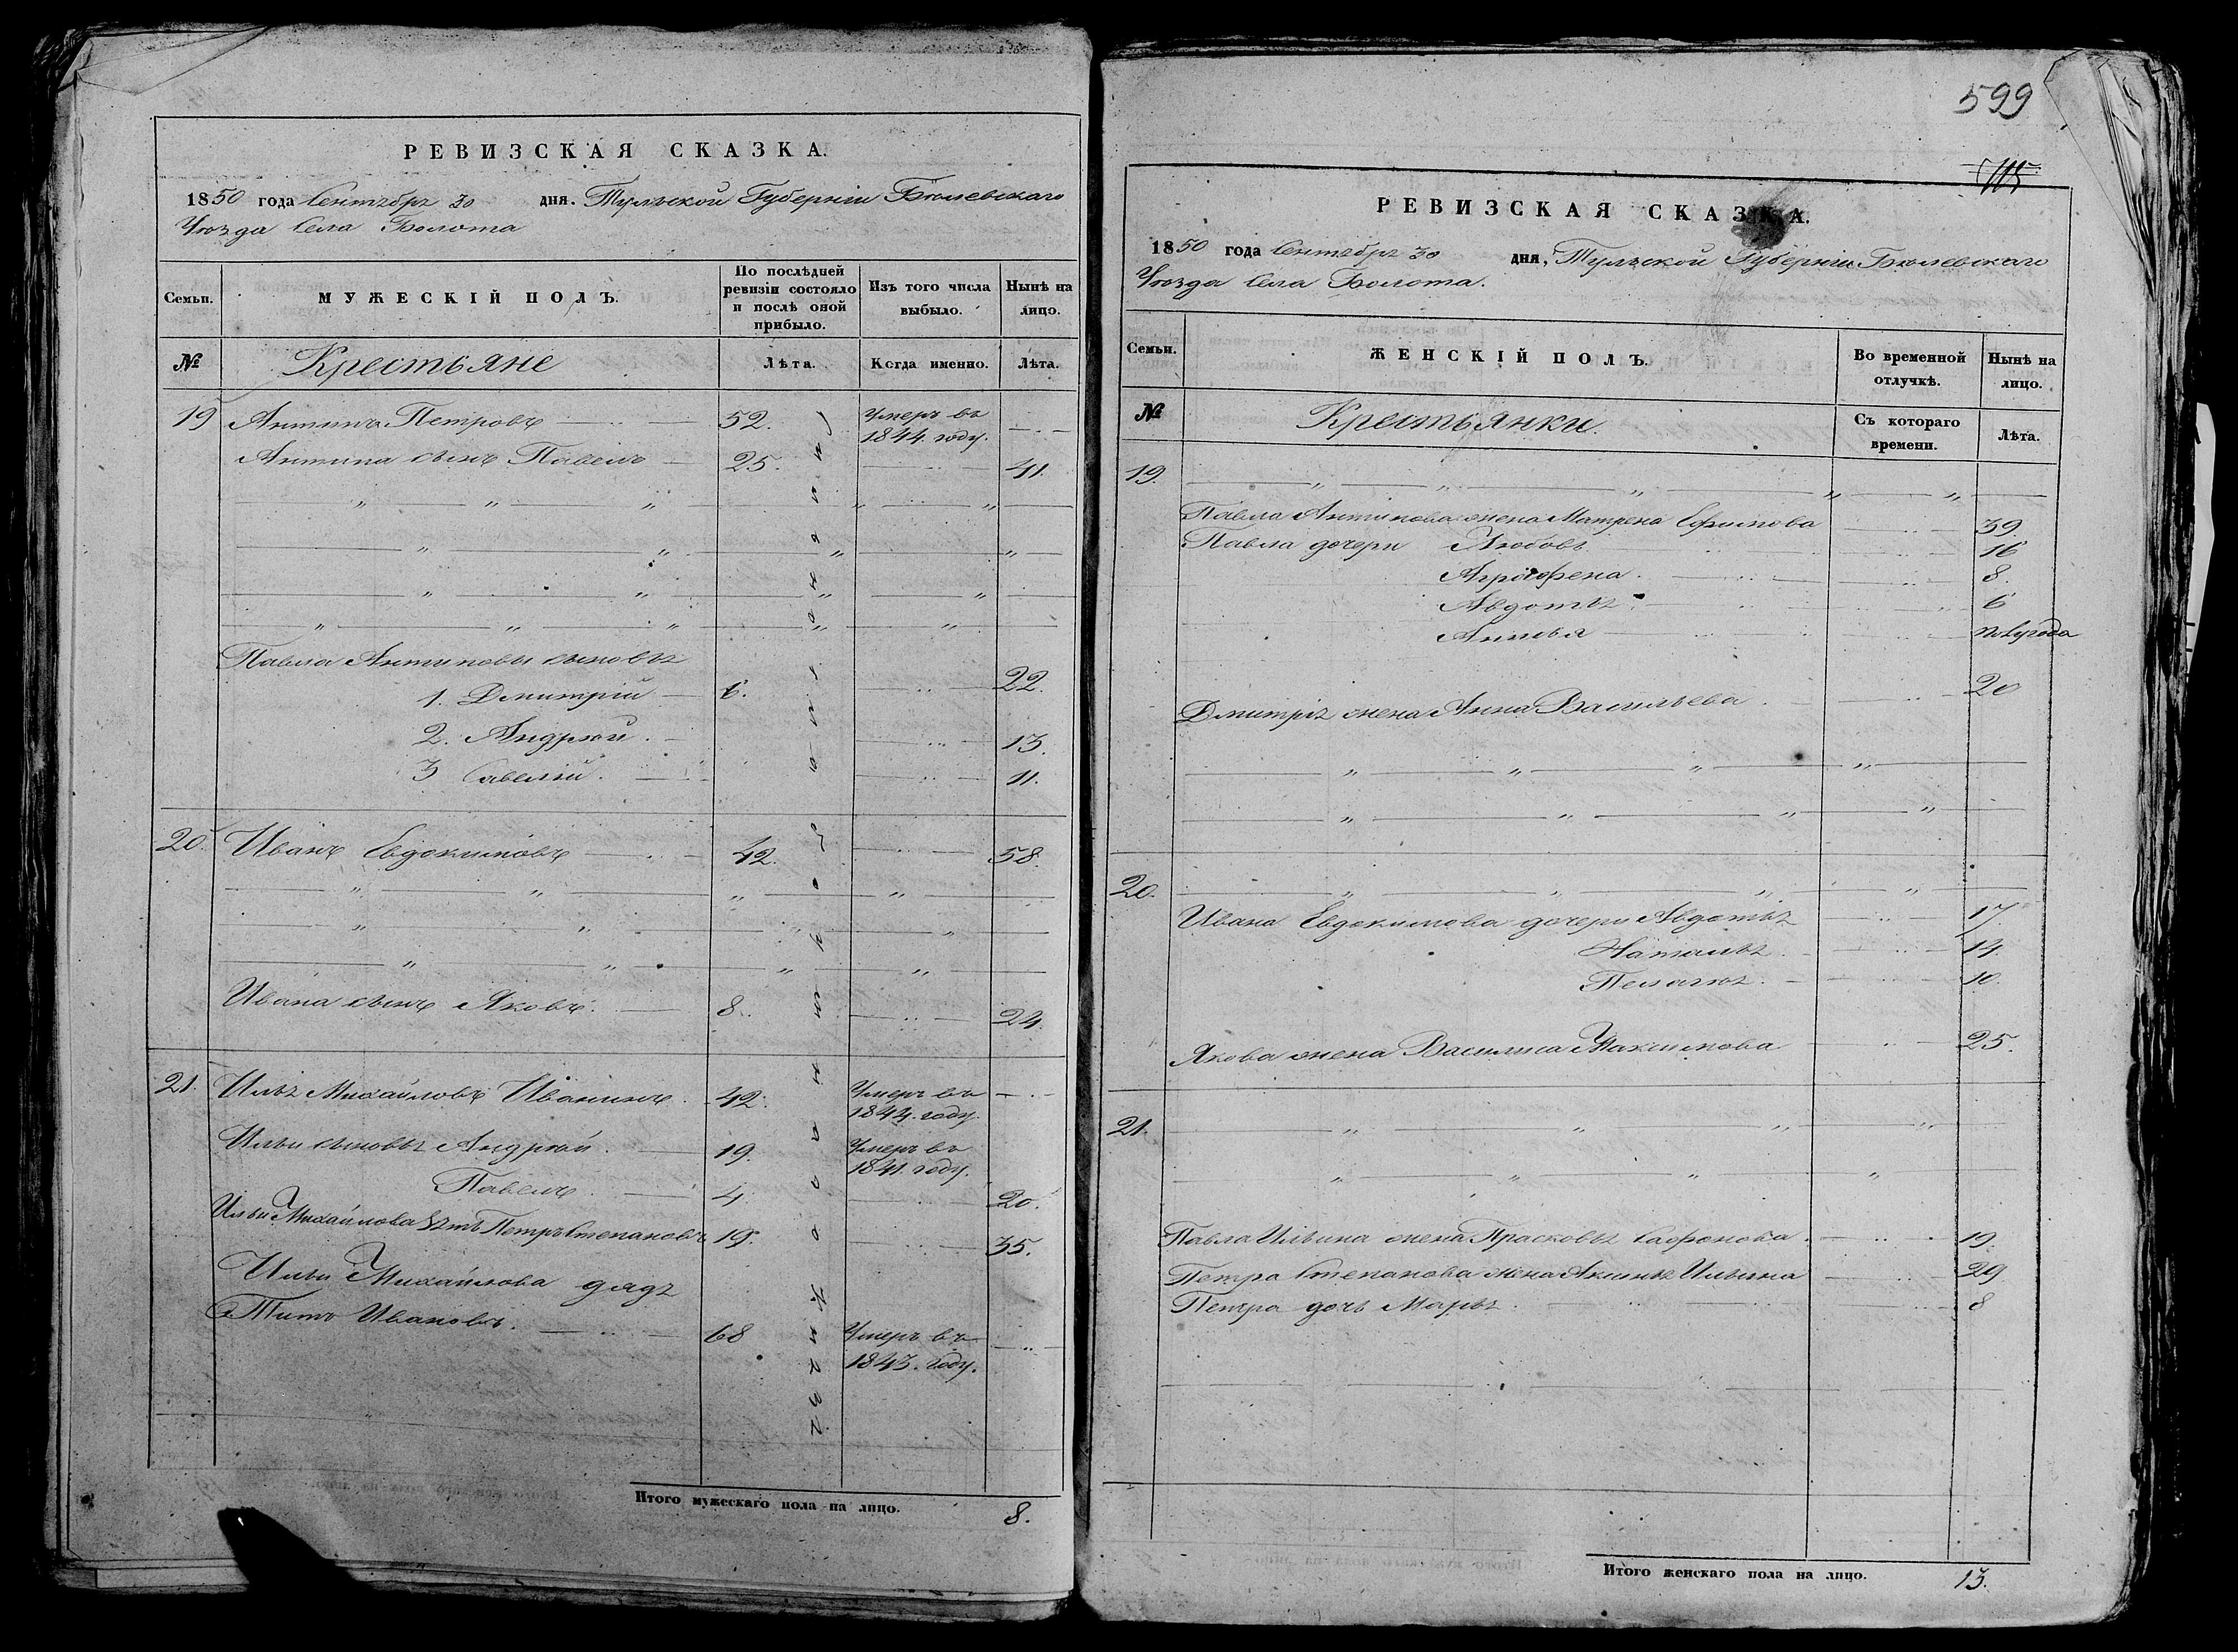 РЕВИЗСКАЯ СКАЗКА.
1850 года Сентября 30 дня. Тульской Губерніи Бѣлевскаго
Уѣзда Села Болота
Семьи. МУЖЕСКІЙ ПОЛЪ. По послѣдней ревизіи состояло и послѣ оной прибыло. Изъ того числа выбыло. Нынѣ на лицо.
№ Крестьяне Лѣта. Когда именно. Лѣта.
19 Антипъ Петровъ 52. Умеръ въ 1844. году.
Антипа сынъ Павелъ 25. 41.
Павла Антиповы сыновья
1. Дмитрій 6. 22.
2. Андрей. 13.
3 Савелій. 11.
20. Иванъ Евдокимовъ 42. 58.
Ивана сынъ Яковъ. 8. 24.
21. Илья Михайловъ Иванинъ. 42. Умеръ въ 1844. году.
Ильи сыновья Андрей. 19. Умеръ въ 1841. году.
Павелъ. 4. 20.
Ильи Михайлова зять Петръ Степановъ 19. 35.
Ильи Михайлова дядя
Титъ Ивановъ. 68 Умеръ въ 1843. году.
Итого мужескаго пола на лицо. 8.
599
115
РЕВИЗСКАЯ СКАЗКА.
1850 года Сентября 30 дня, Тульской Губерніи Бѣлевскаго
Уѣзда Села Болота.
Семьи. ЖЕНСКІЙ ПОЛЪ. Во временной отлучкѣ. Нынѣ на лицо.
№ Крестьянки. Съ котораго времени. Лѣта.
19.
Павла Антипова жена Матрена Ефимова 39.
Павла дочери Любовь 16
Аграфена. 8.
Авдотья. 6
Анисья полгода
Дмитрія жена Анна Васильева. 20
20.
Ивана Евдокимова дочери Авдотья 17.
Наталья. 14.
Пелагея. 10.
Якова жена Василиса Максимова 25.
21.
Павла Ильина жена Прасковья Сафонова. 19.
Петра Степанова жена Акинья Ильина 29
Петра дочь Марья. 8
Итого женскаго пола на лицо. 13.